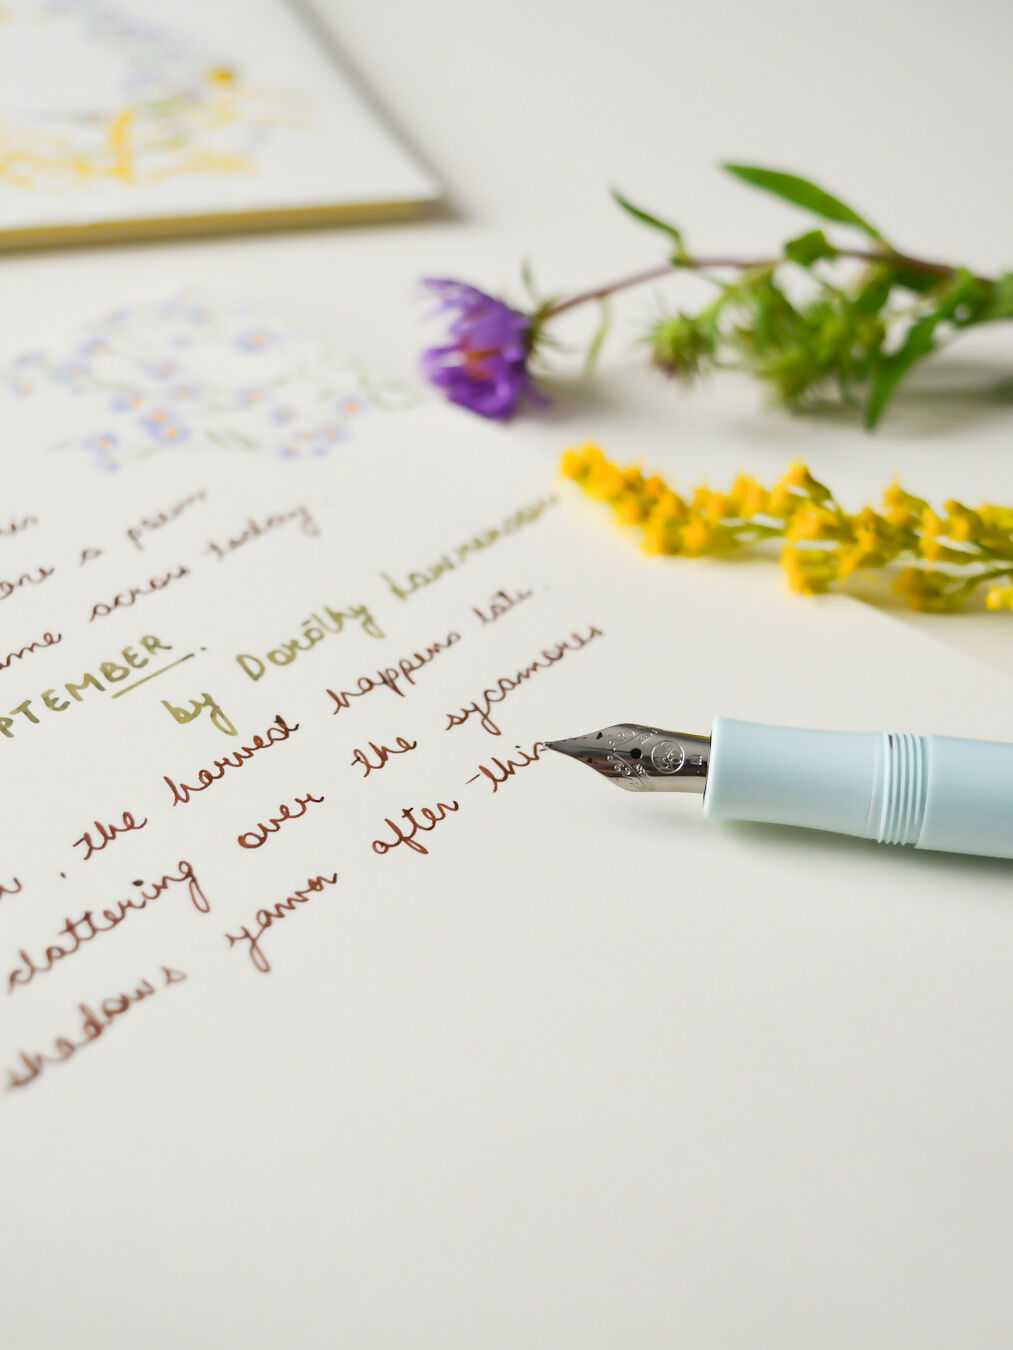 a poem
across today.
PTEMBER.
by Dorothy Lawrenson
, the harvest happens late.
clattering over the sycamores
shadows yawn after this